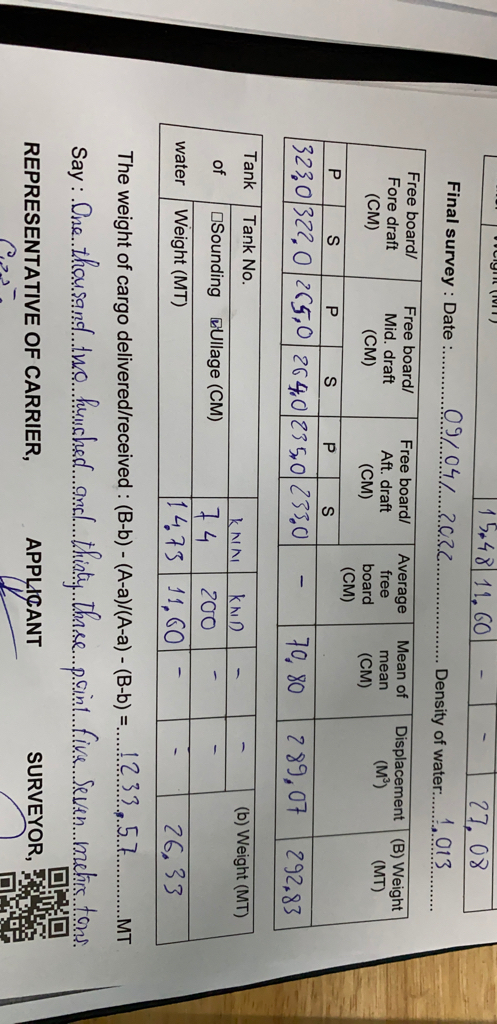 15,48 11,60 - - 27,08
Final survey : Date :..........09/04/ 2022.......... Density of water:....1,013....
Free board/ Fore draft (CM) Free board/ Mid. draft (CM) Free board/ Aft. draft (CM) Average free board (CM) Mean of mean (CM) Displacement (M³) (B) Weight (MT)
P S P S P S
323,0 322,0 265,0 264,0 235,0 233,0 - 70,80 289,07 292,83
Tank of water
Tank No. KNM KNĐ - - (b) Weight (MT)
☐Sounding ☑Ullage (CM) 74 200 - -
Weight (MT) 14,73 11,60 - - 26,33
The weight of cargo delivered/received : (B-b) - (A-a)/(A-a) - (B-b) =....1233,57....MT
Say : One thousand two hundred and thirty three point five seven metric tons.
REPRESENTATIVE OF CARRIER, APPLICANT SURVEYOR,